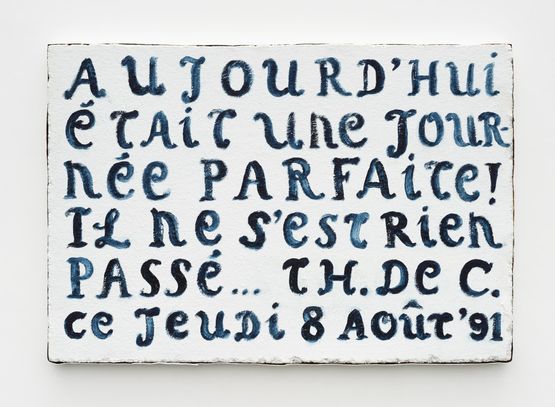 AUJOURD'HUi
éTAiT Une JOUR-
née PARFAiTe!
IL ne s'esT Rien
PASSé... TH. De C.
ce JeuDi 8 AOûT '91